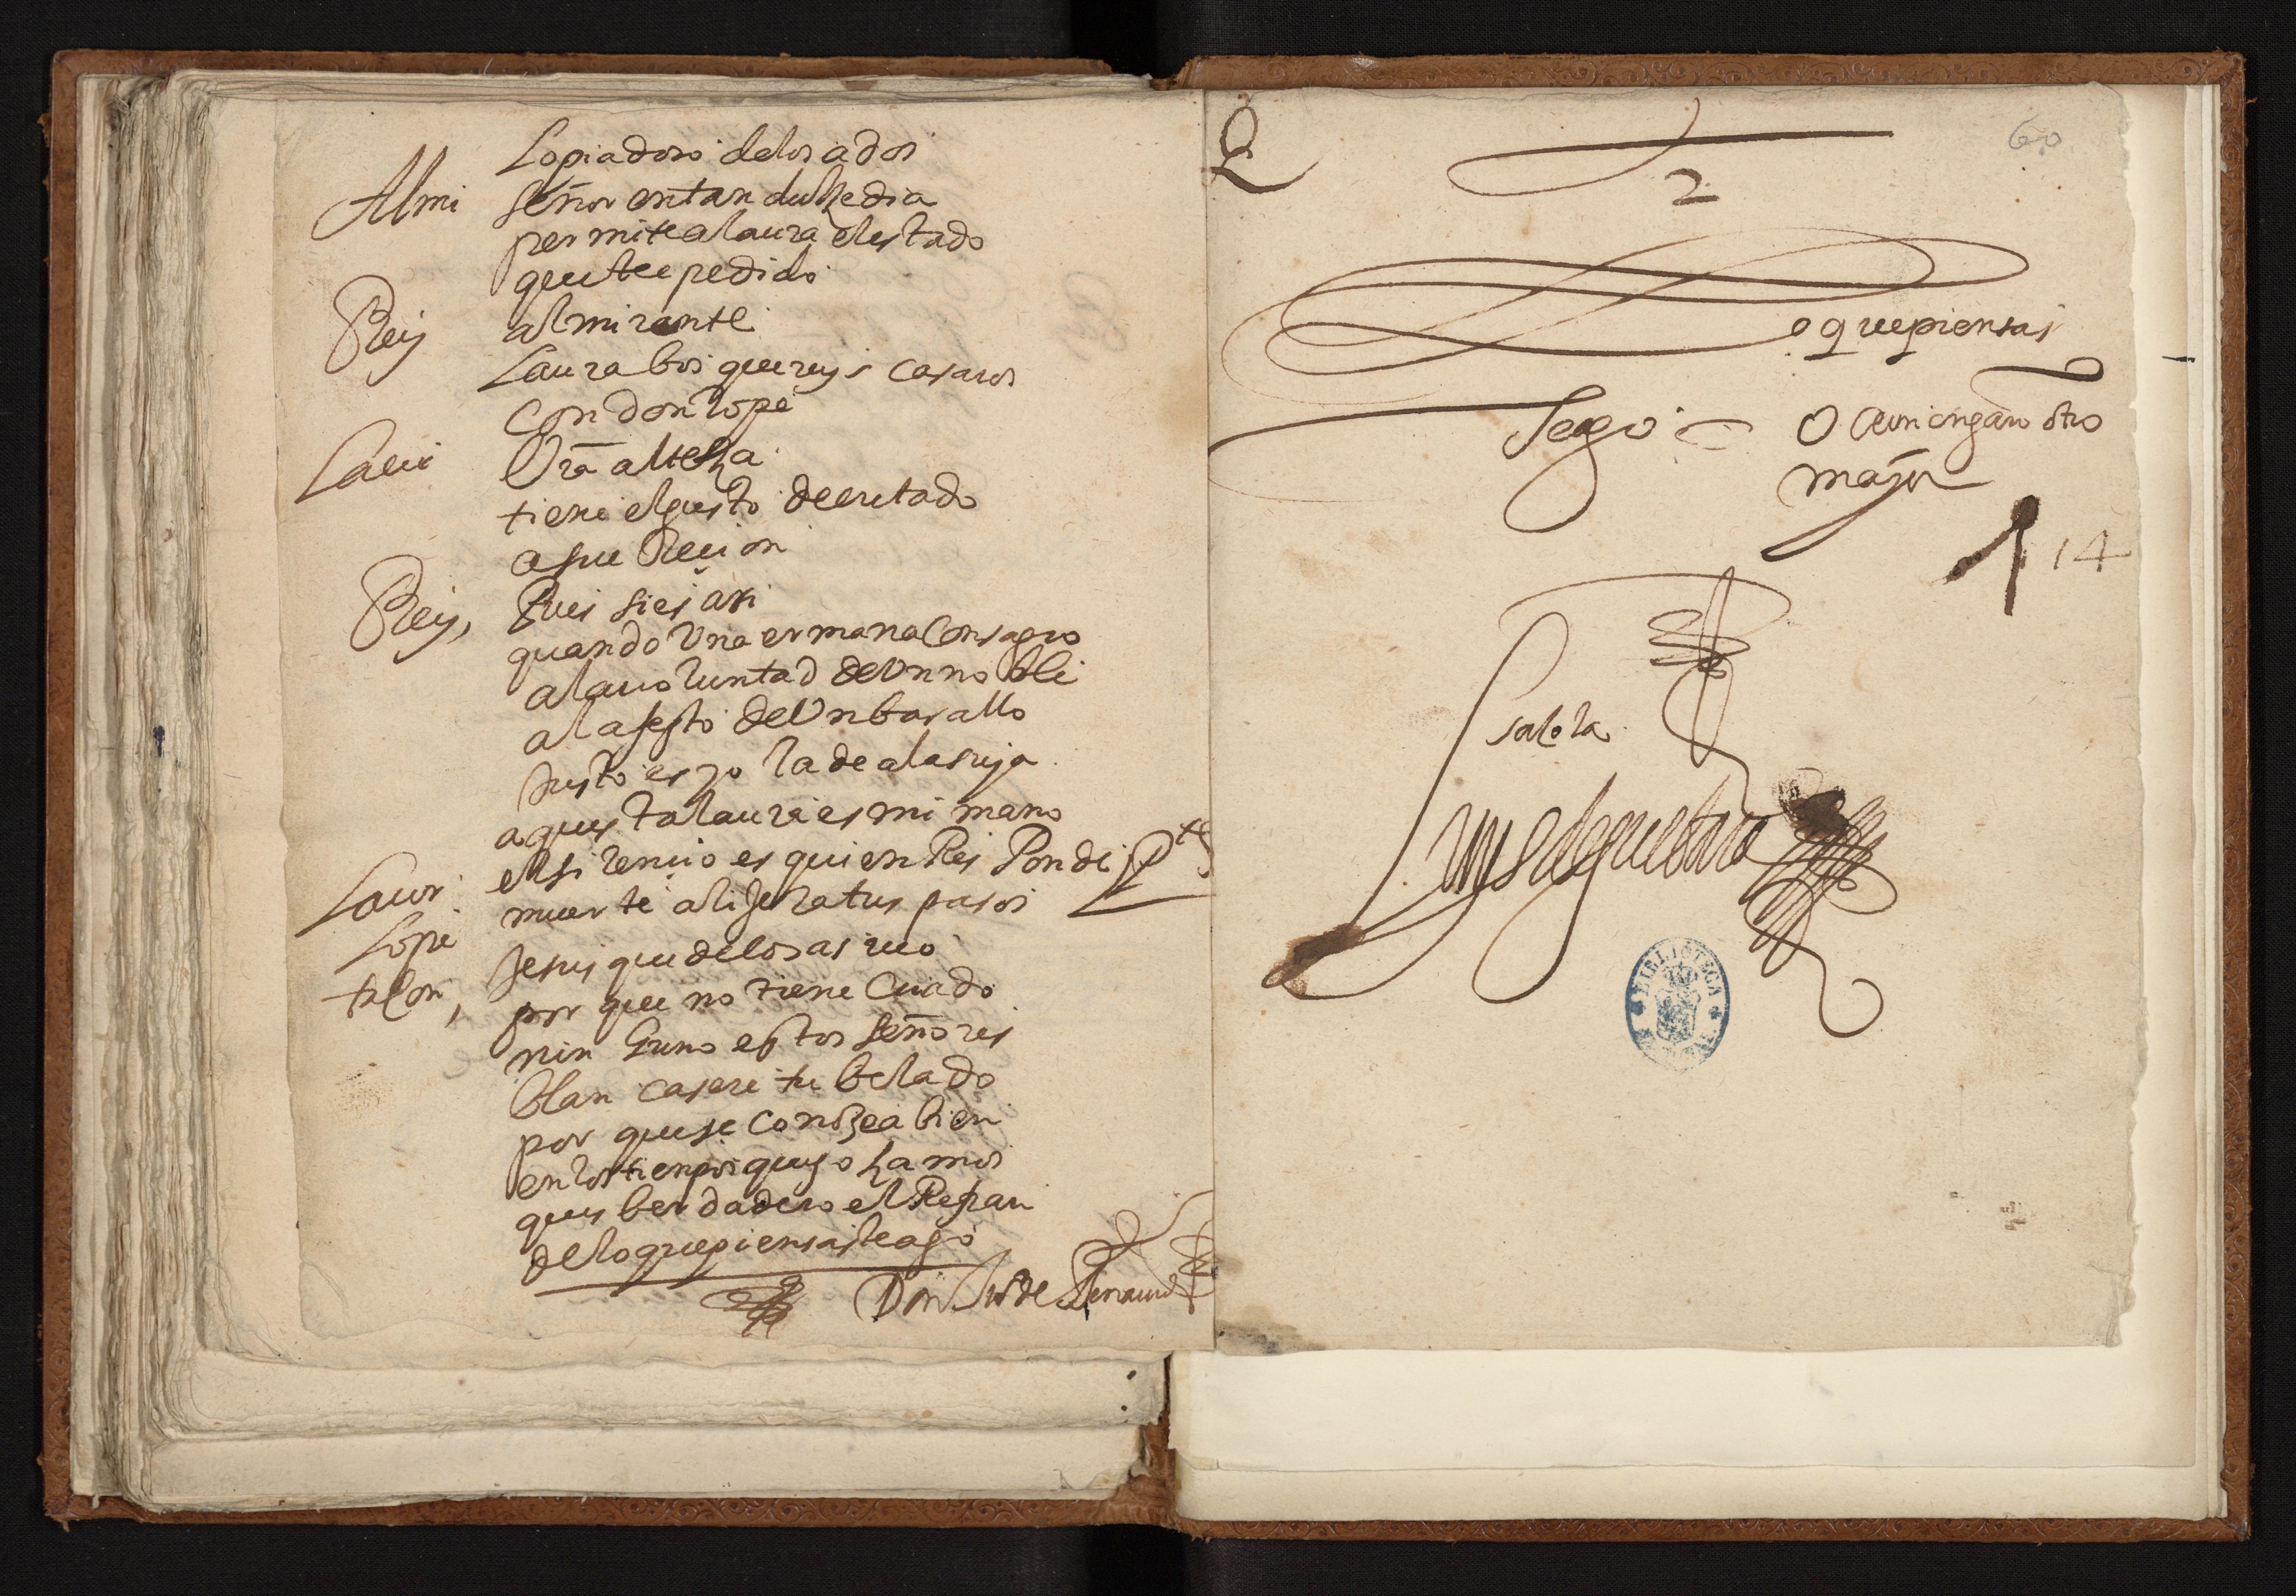 Lo piadoso de los ados
Almi señor en tan dulze dia
permite a laura el estado
que te e pedido
Rey almirante
Laura bos quereys casaros
con don lope
Laur Vra alteza
tiene el gusto decretado
a su elecion
Rey, Pues si es asi
quando Una ermana consagro
a la uoluntad de Un noble
al afecto de Un basallo
Justo es yo la de a la suya
aquesta laura es mi mano
Laur el silencio es quien Res Ponde
Lope muerte alijera tus pasos
talon, Jesus que
por que no tiene criado
ninguno estos señores
blan casere tu belado
por que se conozca bien
en los tienpos que yo
ques berdadero el Refran
de lo que piensas te ago
Don Ju de
60
2
o que piensas
Jago O aun engaño otro
mayor
14
Salola
BIBLIOTECA